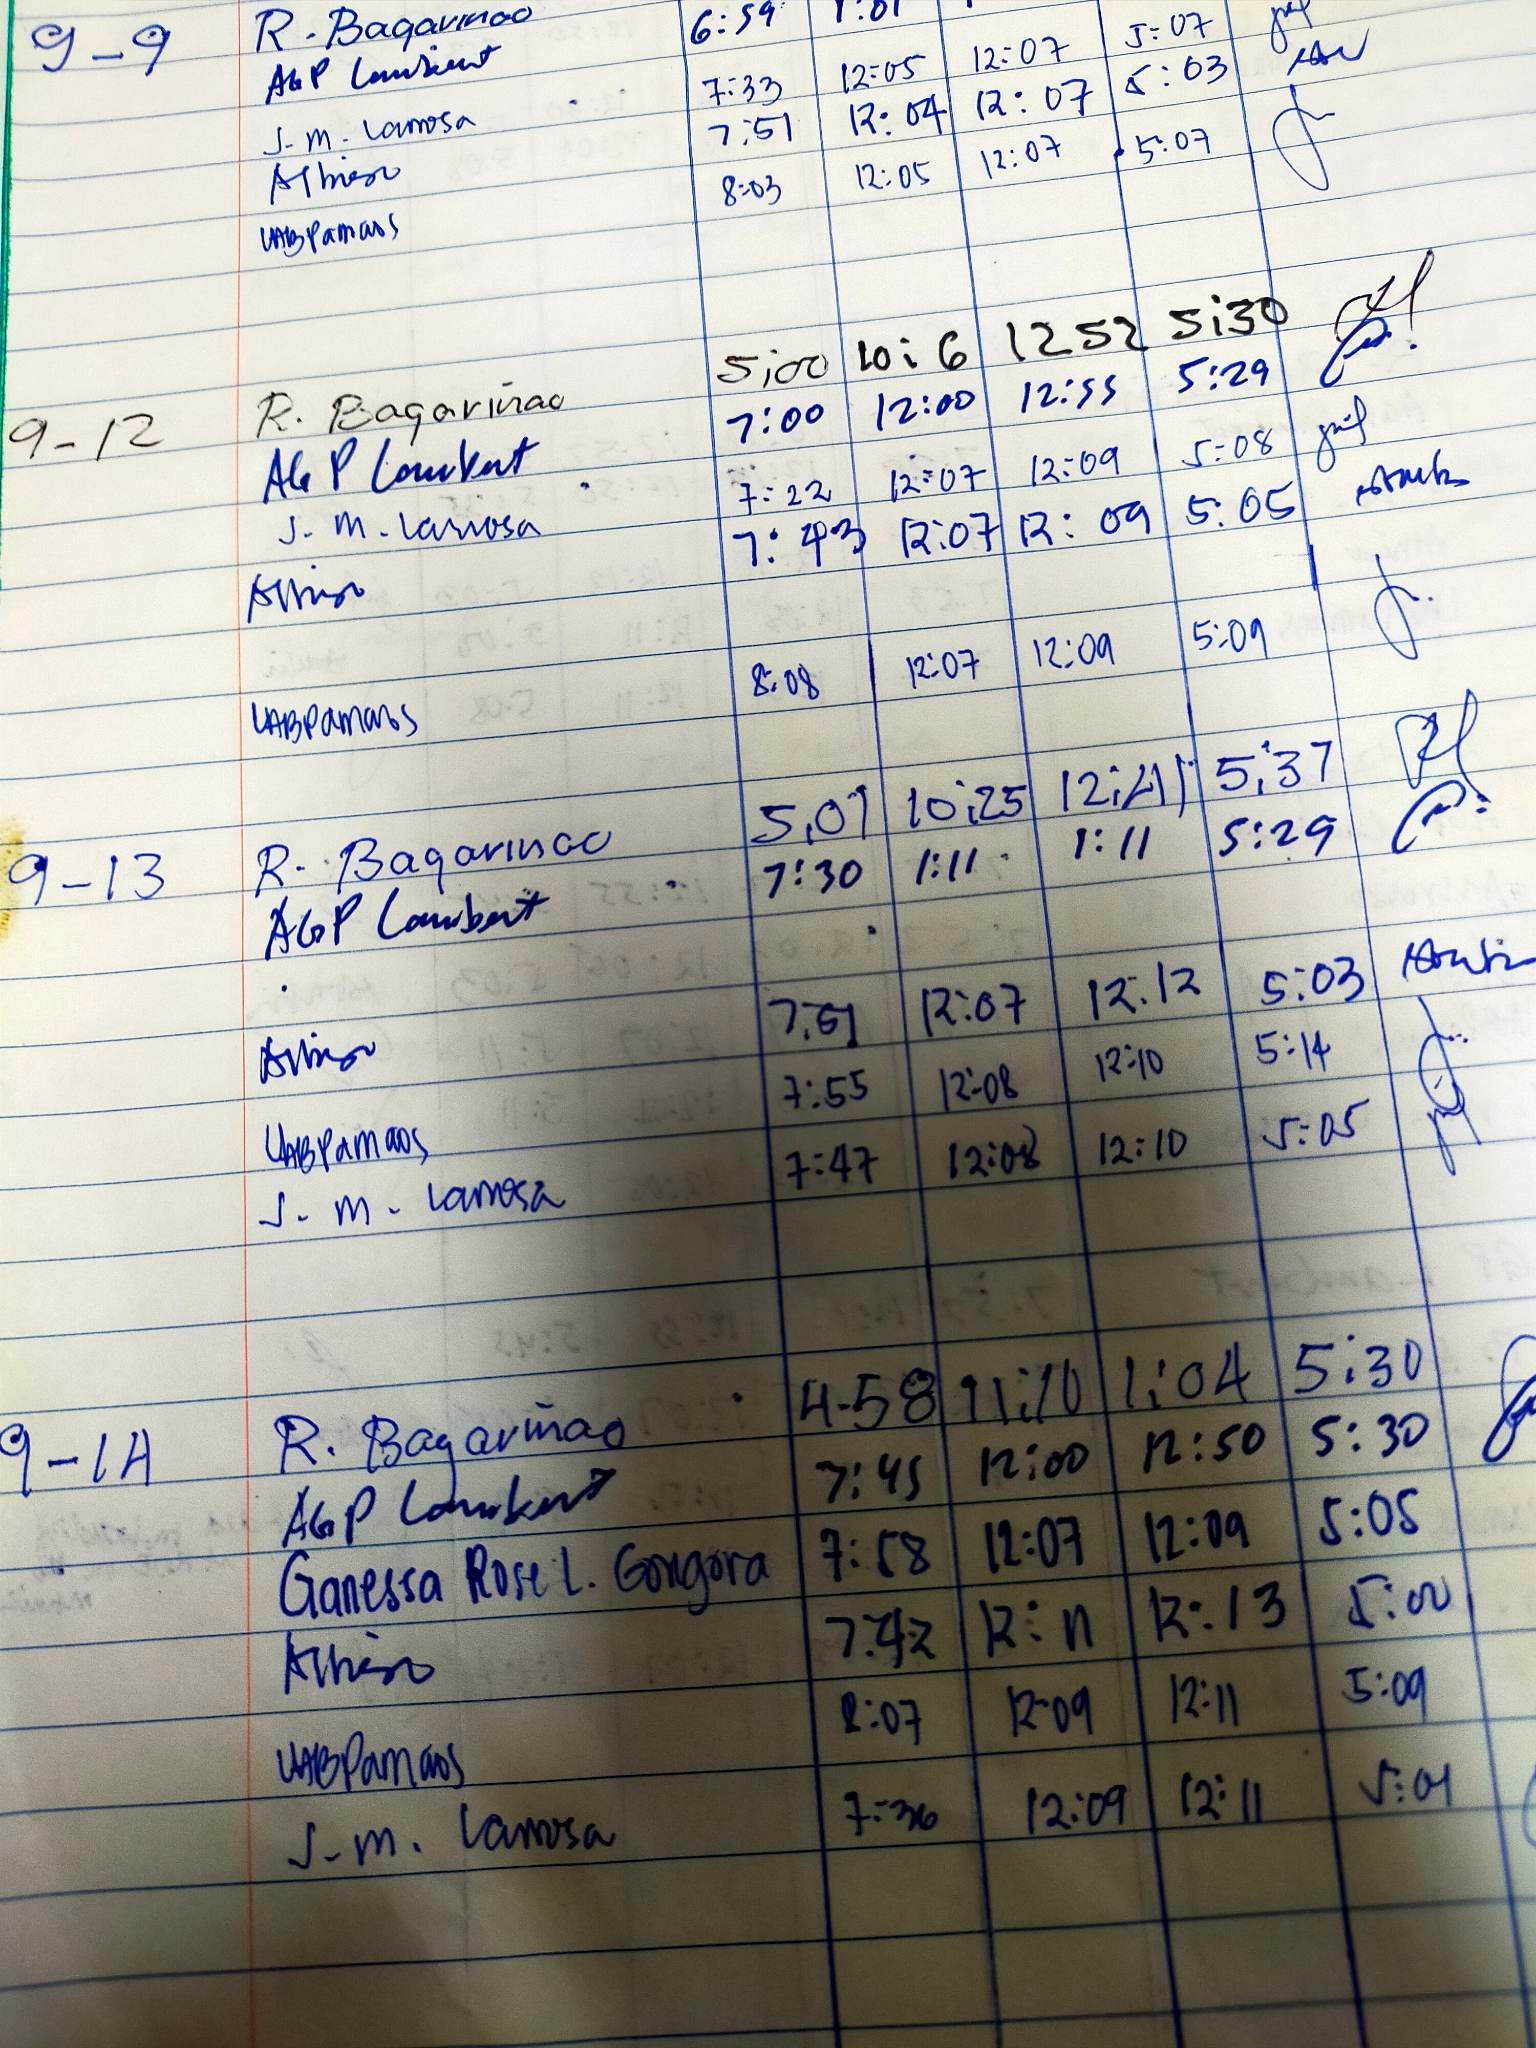 9-9 R. Bagarinao
AGP Lambert 6:59 1:01
J. M. Larrosa 7:33 12:05 12:07 5:07
7:51 12:04 12:07 5:03
UABPamaos 8:03 12:05 12:07 5:07
9-12 R. Bagariñao 5;00 10;6 12 52 5;30
AGP Lambert 7:00 12:00 12:55 5:29
J. M. Larrosa 7:22 12:07 12:09 5:08
7:43 12:07 12:09 5:05
UABPamaos 8:08 12:07 12:09 5:09
9-13 R. Bagarinao 5;01 10;25 5;37
AGP Lambert 7:30 1:11 1:11 5:29
7:51 12:07 12:12 5:03
UABPamaos 7:55 12:08 12:10 5:14
J. M. Larrosa 7:47 12:08 12:10 5:05
9-14 R. Bagariñao 4-58 11;10 1;04 5;30
AGP Lambert 7:45 12:00 12:50 5:30
Ganessa Rose L. Gongora 7:58 12:07 12:09 5:05
7:42 12:11 12:13 5:00
UABPamaos 8:07 12:09 12:11 5:09
J. M. Larrosa 7:36 12:09 12:11 5:01